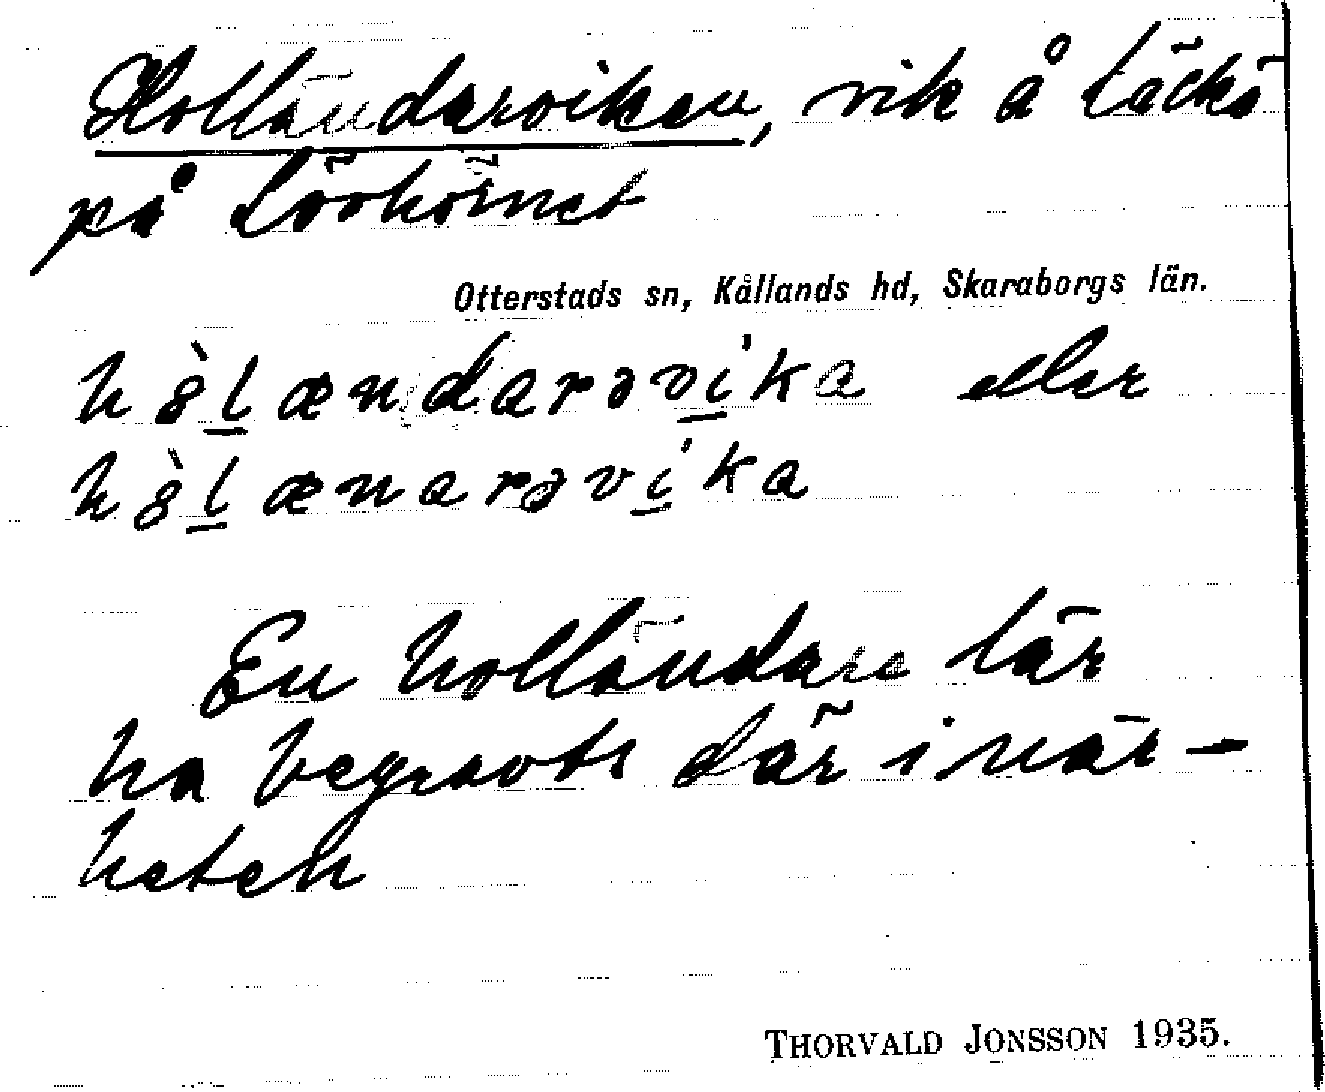 Holländarviken, vik å Läckö
på Lövhörnet
Otterstads sn, Kållands hd, Skaraborgs län.
hò̤l̲ændarəvi̲ka eller
hò̤l̲ænarəvi̲ka
En holländare lär
ha begravts där i när-
heten
THORVALD JONSSON 1935.